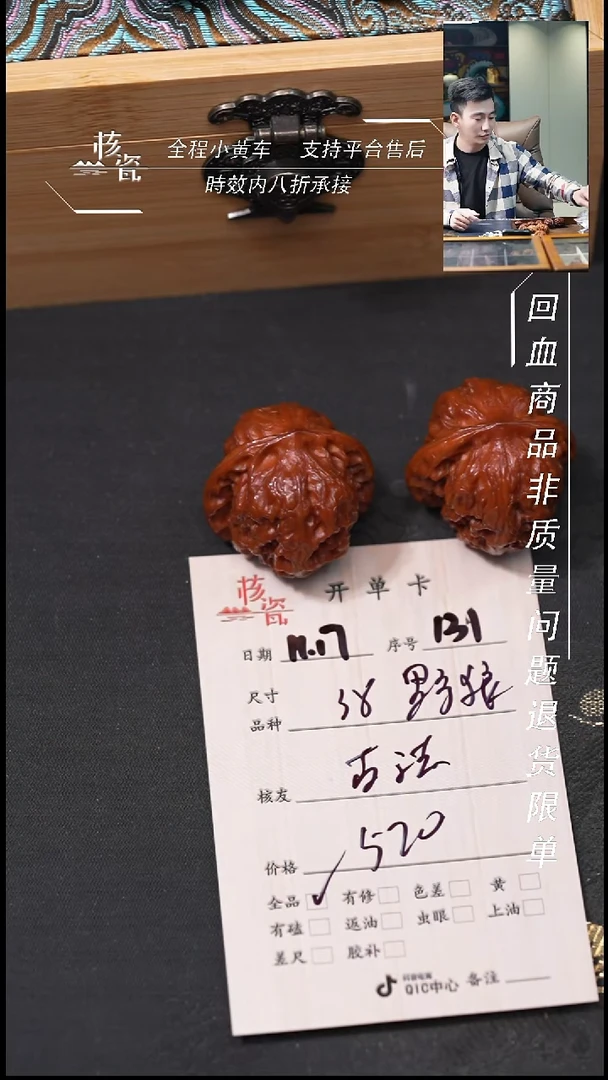 核瓷
全程小黄车 支持平台售后
時效内八折承接
回血商品非质量问题退货限单
核瓷 开单卡
日期 11.17 序号 131
尺寸
品种 38 野狼
核友 古法
价格 520
全品 有修 色差 黄
有磕 返油 虫眼 上油
差尺 胶补
QIC中心 备注